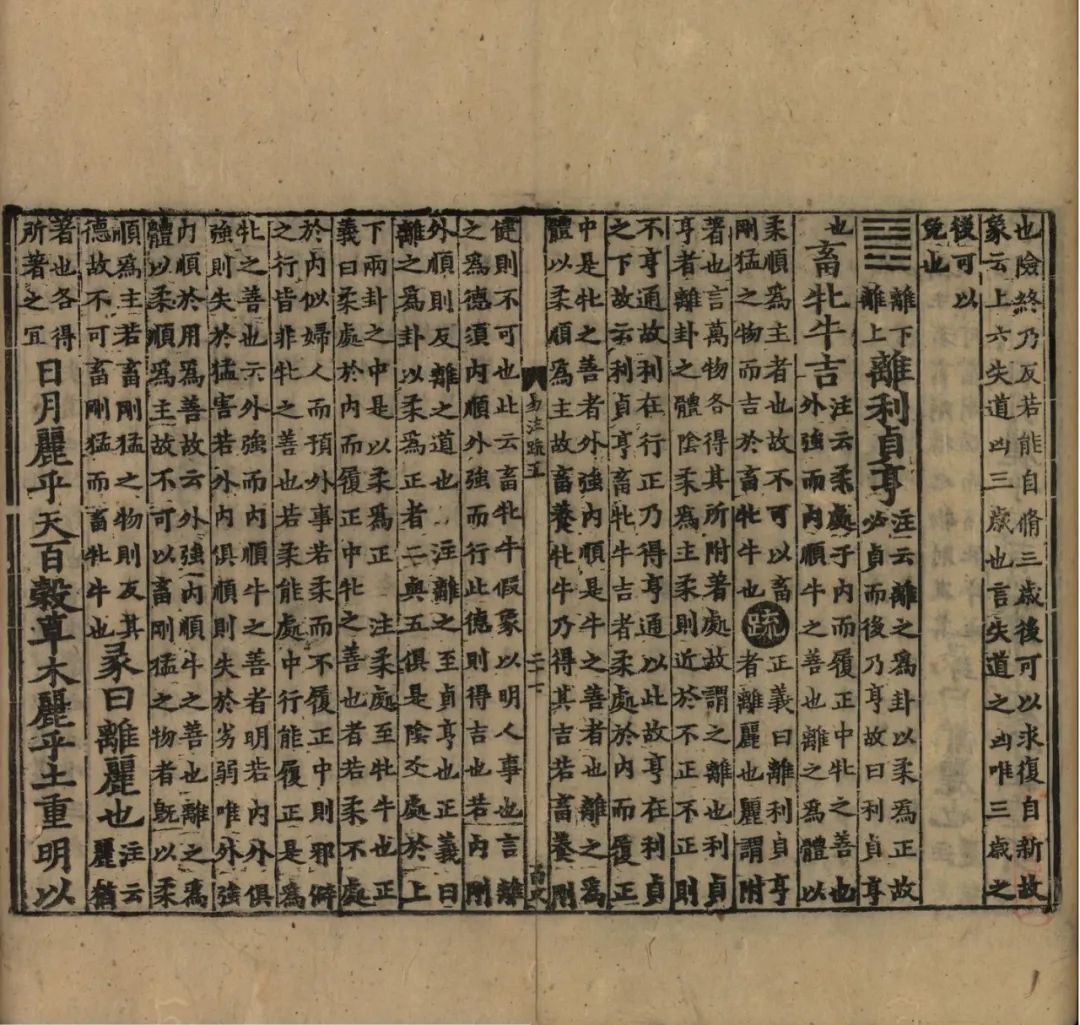 也險終乃反若能自脩三歲後可以求復自新故
象云上六失道凶三歲也言失道之凶唯三歲之
後可以
免也
䷝離下離上離利貞亨注云離之爲卦以柔爲正故
必貞而後乃亨故曰利貞亨
也畜牝牛吉注云柔處于內而履正中牝之善也
外強而內順牛之善也離之爲體以
柔順爲主者也故不可以畜
剛猛之物而吉於畜牝牛也疏正義曰離利貞亨
者離麗也麗謂附
著也言萬物各得其所附著處故謂之離也利貞
亨者離卦之體陰柔爲主柔則近於不正不正則
不亨通故利在行正乃得亨通以此故亨在利貞
之下故云利貞亨畜牝牛吉者柔處於內而履正
中是牝之善者外強內順是牛之善者也離之爲
體以柔順爲主故畜養牝牛乃得其吉若畜養剛
易注疏五
健則不可也此云畜牝牛假象以明人事也言離
之爲德須內順外強而行此德則得吉也若內剛
外順則反離之道也 注離之至貞亨也正義曰
離之爲卦以柔爲正者二與五俱是陰爻處於上
下兩卦之中是以柔爲正 注柔處至牝牛也正
義曰柔處於內而履正中牝之善也者若柔不處
於內似婦人而預外事若柔而不履正中則邪僻
之行皆非牝之善也若柔能處中行能履正是爲
牝之善也云外強而內順牛之善者明若內外俱
強則失於猛害若外內俱順則失於劣弱唯外強
內順於用爲善故云外強內順牛之善也離之爲
體以柔順爲主故不可以畜剛猛之物者既以柔
順爲主若畜剛猛之物則反其
德故不可畜剛猛而畜牝牛也彖曰離麗也注云
麗猶
著也各得
所著之宜日月麗乎天百穀草木麗乎土重明以